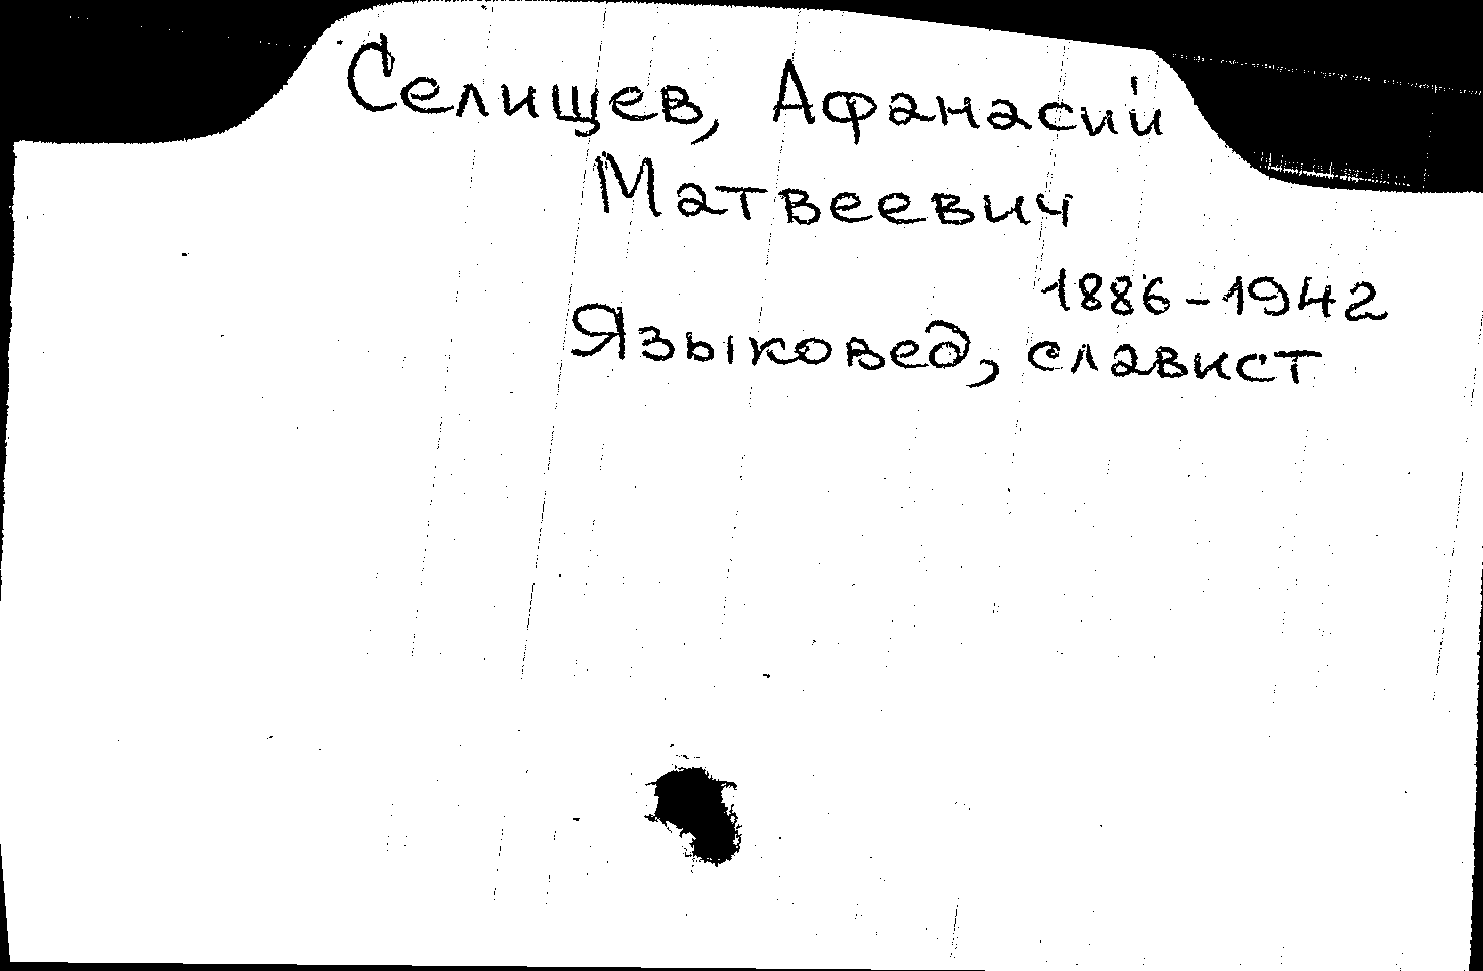 Селищев, Афанасий
Матвеевич
1886-1942
Языковед, славист